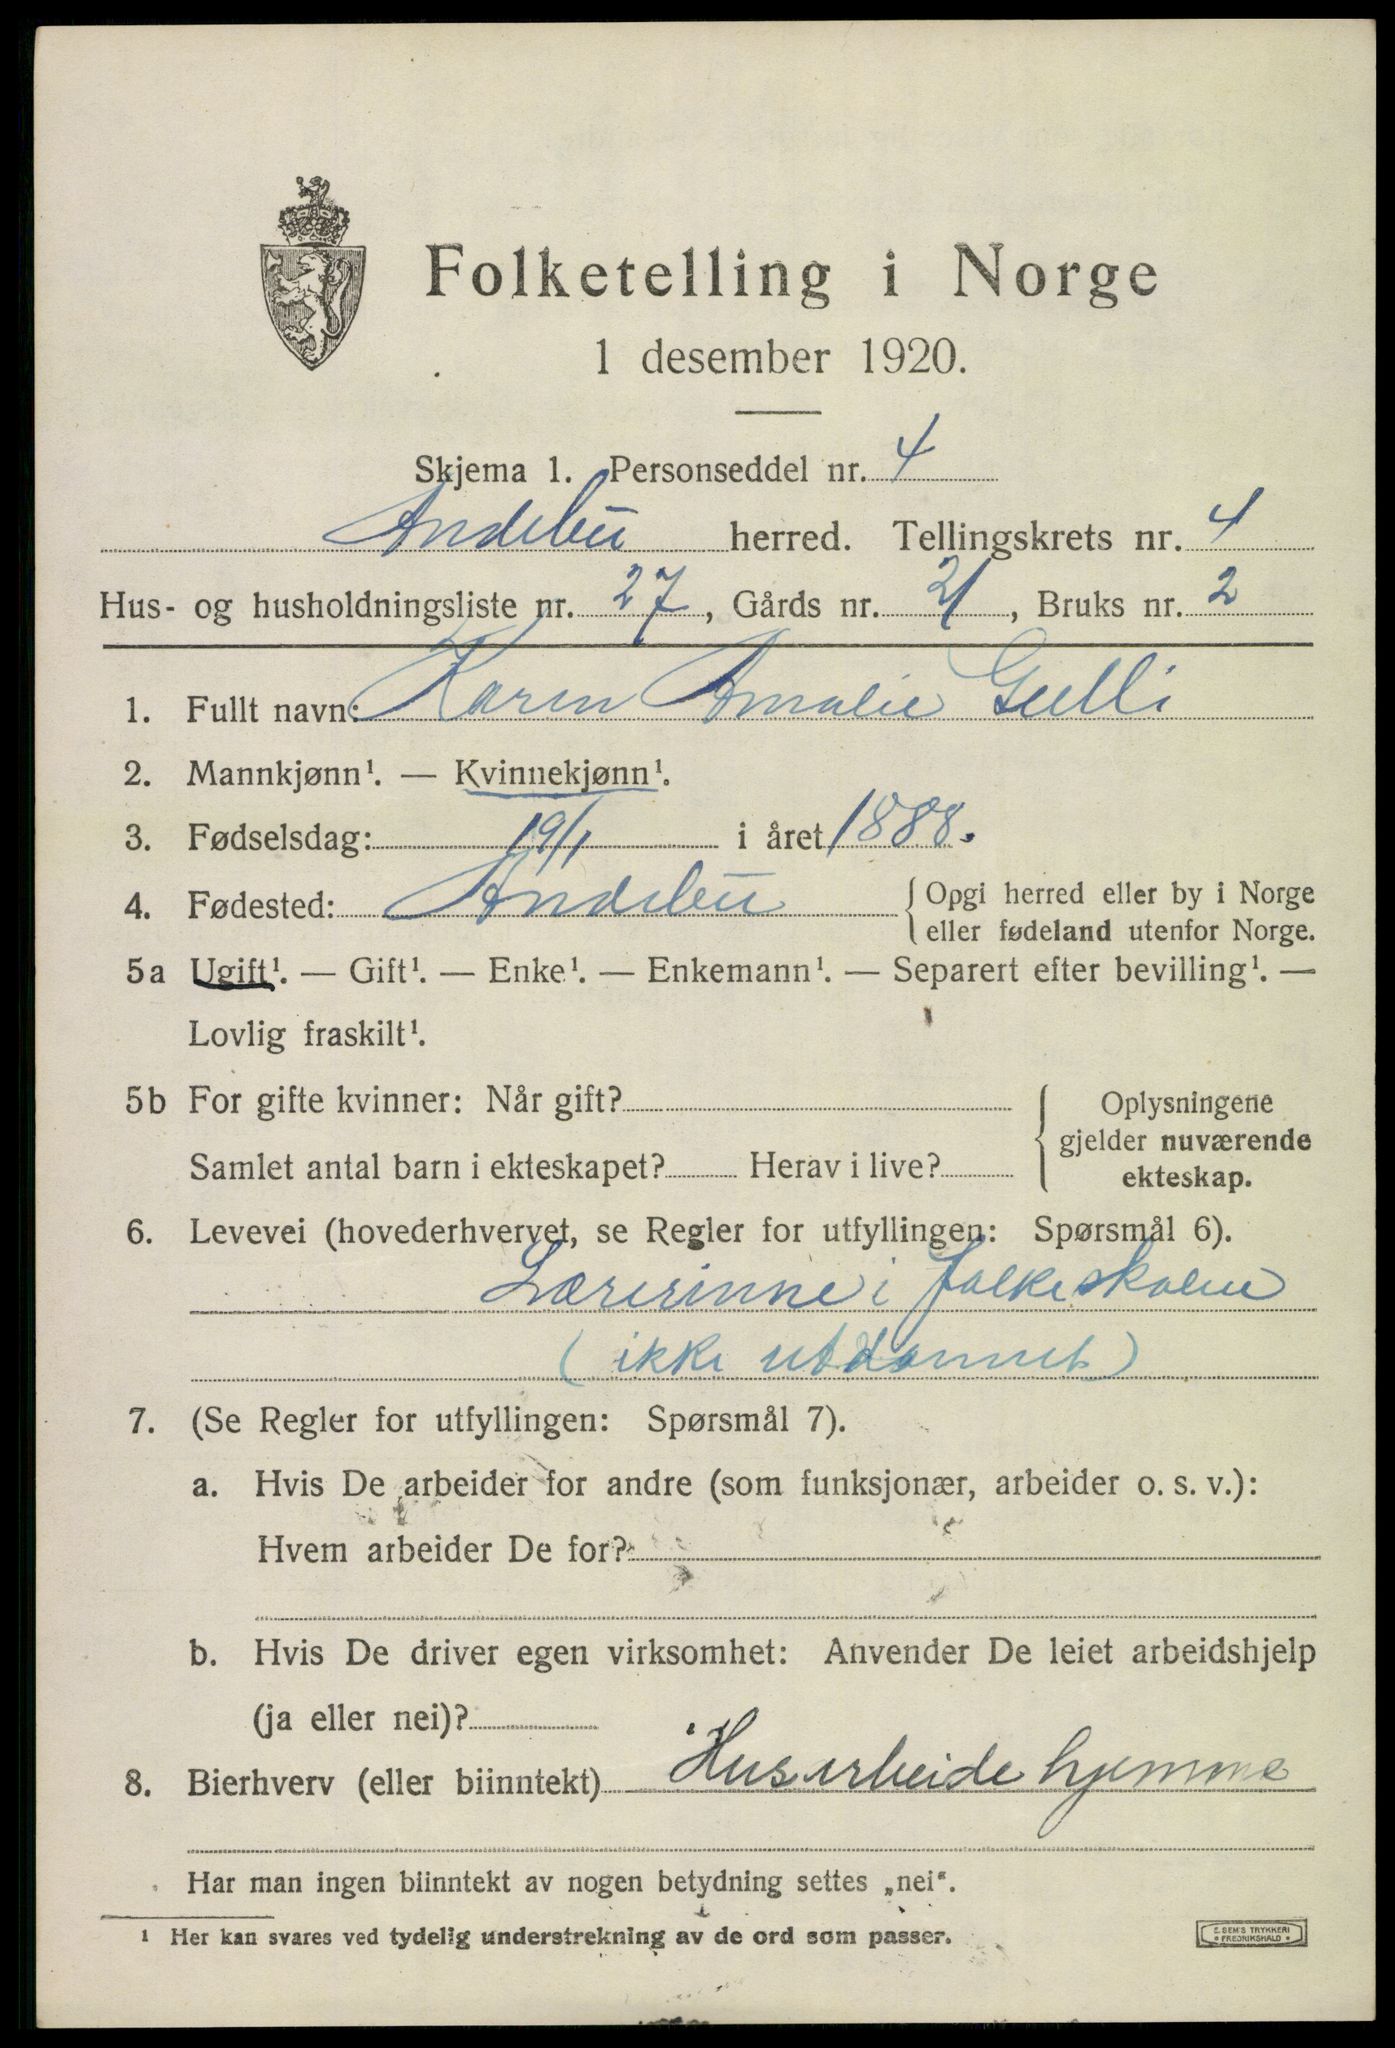 Folketelling i Norge
1 desember 1920.
Skjema 1. Personseddel nr. 4
Andebu herred. Tellingskrets nr. 4
Hus- og husholdningsliste nr. 27, Gårds nr. 21, Bruks nr. 2
1. Fullt navn: Karen Amalie Gulli
2. Mannkjønn¹. — Kvinnekjønn¹.
3. Fødselsdag: 19/1 i året 1888.
4. Fødested: Andebu { Opgi herred eller by i Norge
eller fødeland utenfor Norge.
5a Ugift¹. — Gift¹. — Enke¹. — Enkemann¹. — Separert efter bevilling¹. —
Lovlig fraskilt¹.
5b For gifte kvinner: Når gift?
Samlet antal barn i ekteskapet? Herav i live?
Oplysningene
gjelder nuværende
ekteskap.
6. Levevei (hovederhvervet, se Regler for utfyllingen: Spørsmål 6).
Lærerinne i folkeskolen
(ikke utdannet)
7. (Se Regler for utfyllingen: Spørsmål 7).
a. Hvis De arbeider for andre (som funksjonær, arbeider o. s. v.):
Hvem arbeider De for?
b. Hvis De driver egen virksomhet: Anvender De leiet arbeidshjelp
(ja eller nei)?
8. Bierhverv (eller biinntekt) Husarbeide hjemme
Har man ingen biinntekt av nogen betydning settes „nei“.
¹ Her kan svares ved tydelig understrekning av de ord som passer.
E. SEM'S TRYKKERI
* FREDRIKSHALD *